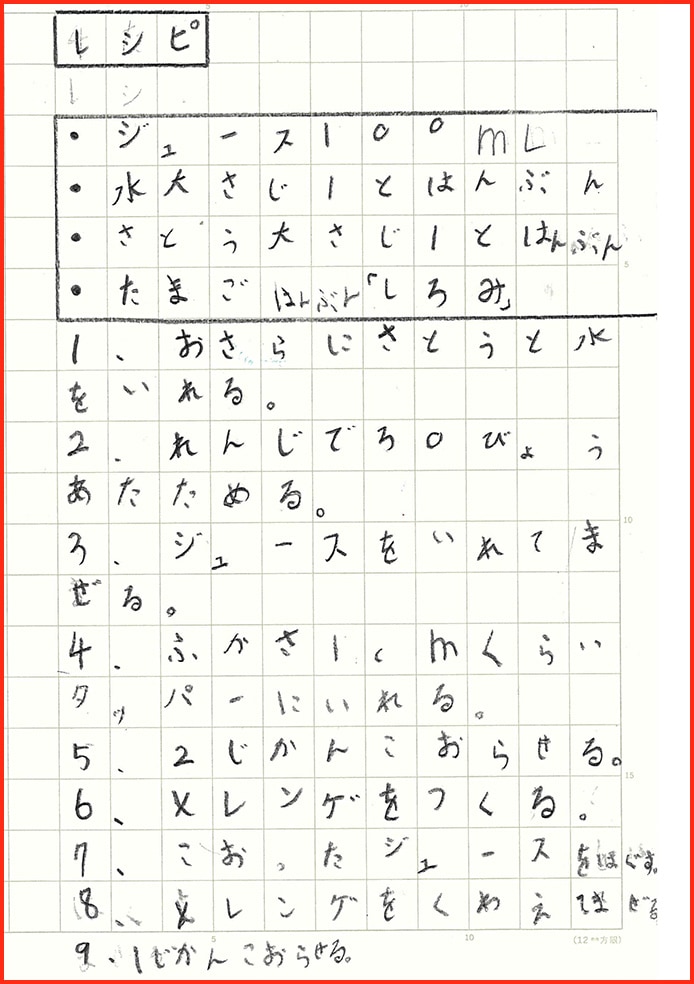 レシピ
レシ
・ジュース100mL
・水大さじ1とはんぶん
・さとう大さじ1とはんぶん
・たまごはんぶん「しろみ」
1、おさらにさとうと水
をいれる。
2、れんじで30びょう
あたためる。
3、ジュースをいれてま
ぜる。
4、ふかさ1cmくらい
タッパーにいれる。
5、2じかんこおらせる。
6、メレンゲをつくる。
7、こおったジュースをほぐす。
8、メレンゲをくわえてまぜる
9、1じかんこおらせる。
5
10
15
5
10
(12㎜方眼)